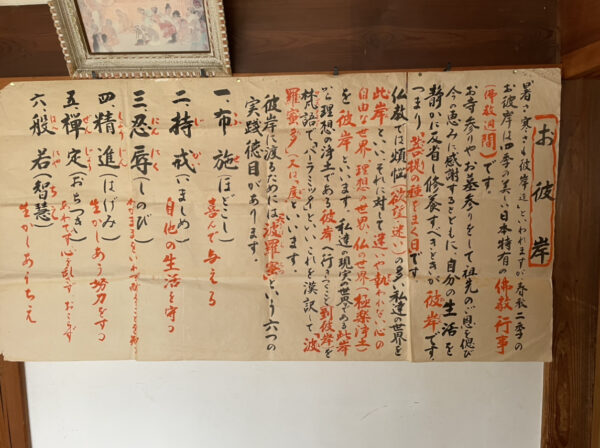 お彼岸
暑さ、寒さも彼岸迄といわれますが、春秋二季の
お彼岸は四季の美しい日本特有の佛教行事
(佛教週間)です。
お寺参りやお墓参りをして祖先のご恩を偲び
今の恵みに感謝するとともに、自分の生活を
静かに反省し修養すべきときが彼岸です。
つまり「菩提の種をまく日」です
仏教では煩悩(欲望、迷い)の多い私達の世界を
此岸といい、それに対して迷いや執われない心の
自由な世界、理想の世界、仏の世界(極楽浄土)
を彼岸といいます 私達の現実の世界である此岸
から理想の浄土である彼岸へ行きつくことを到彼岸を
梵語でパーラミッタといい、これを漢訳して「波
羅蜜多」又は「度」といいます。
彼岸に渡るためには波羅蜜という六つの
実践徳目があります。
一、布施(ほどこし) 喜んで与える
二、持戒(いましめ) 自他の生活を守る
三、忍辱(しのび)
四、精進(はげみ) 生かしあう努力をする
五、禅定(おちつき)
六、般若(智慧) 生かしあうちえ